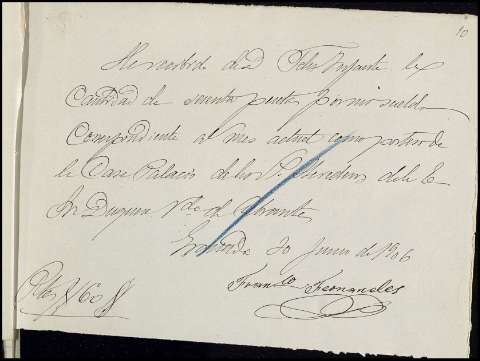 10
He recibido de D. Felix Infante la
Cantidad de sesenta pesetas por mi sueldo
Correspondiente al mes actual como portero de
la Casa Palacio de los Sres. de la E
Sra Duquesa Vda de Abrantes
Granada 30 Junio de 1906
Ptas 60
Franco Fernandes